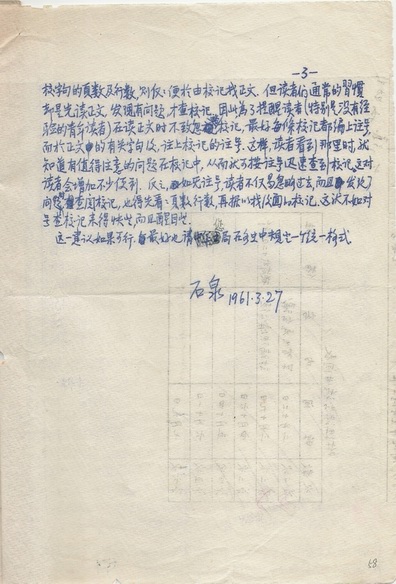 -3-
校字句的頁數及行數,则仅仅便於由校记找正文。但读者们通常的習慣
却是先读正文,发现有问题,才查校记。因此为了提醒读者(特别是没有经
验的青年读者)在读正文时不致忽略校记,最好每條校记都编上注号,
而於正文中的有关均旁,注上校记的注号。这样,读者看到那里时,就
知道有值得注意的问题在校记中,从而就可按注号迅速查到校记。这对
读者会增加不少便利。反之,如无注号,读者不仅易忽略过去,而且发现了
问题查阅校记,也得先看頁數行數,再据以找自己的校记,这决不如对
号查校记来得快些,而且醒目些。
这一建议如果可行,最好也请 局在 中规定一个统一格式。
石泉 1961.3.27
58